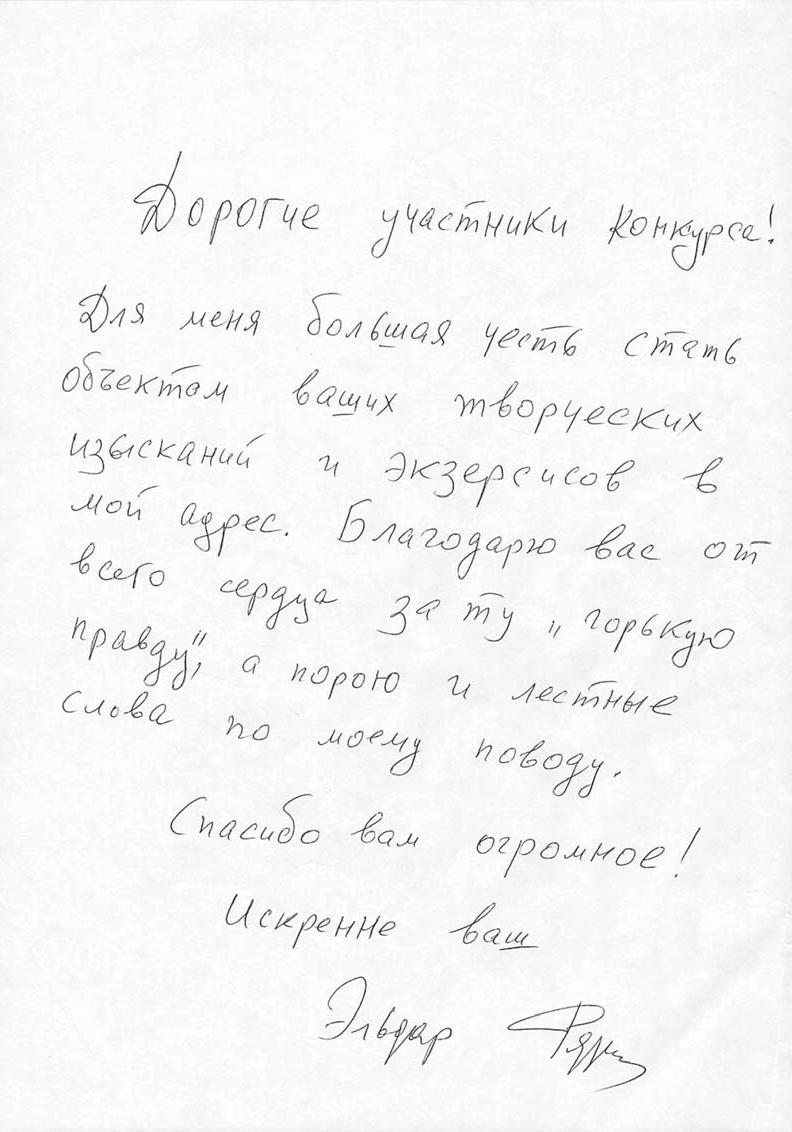 Дорогие участники конкурса!
Для меня большая честь стать
объектом ваших творческих
изысканий и экзерсисов в
мой адрес. Благодарю вас от
всего сердца за ту „горькую
правду", а порою и лестные
слова по моему поводу.
Спасибо вам огромное!
Искренне ваш
Эльдар